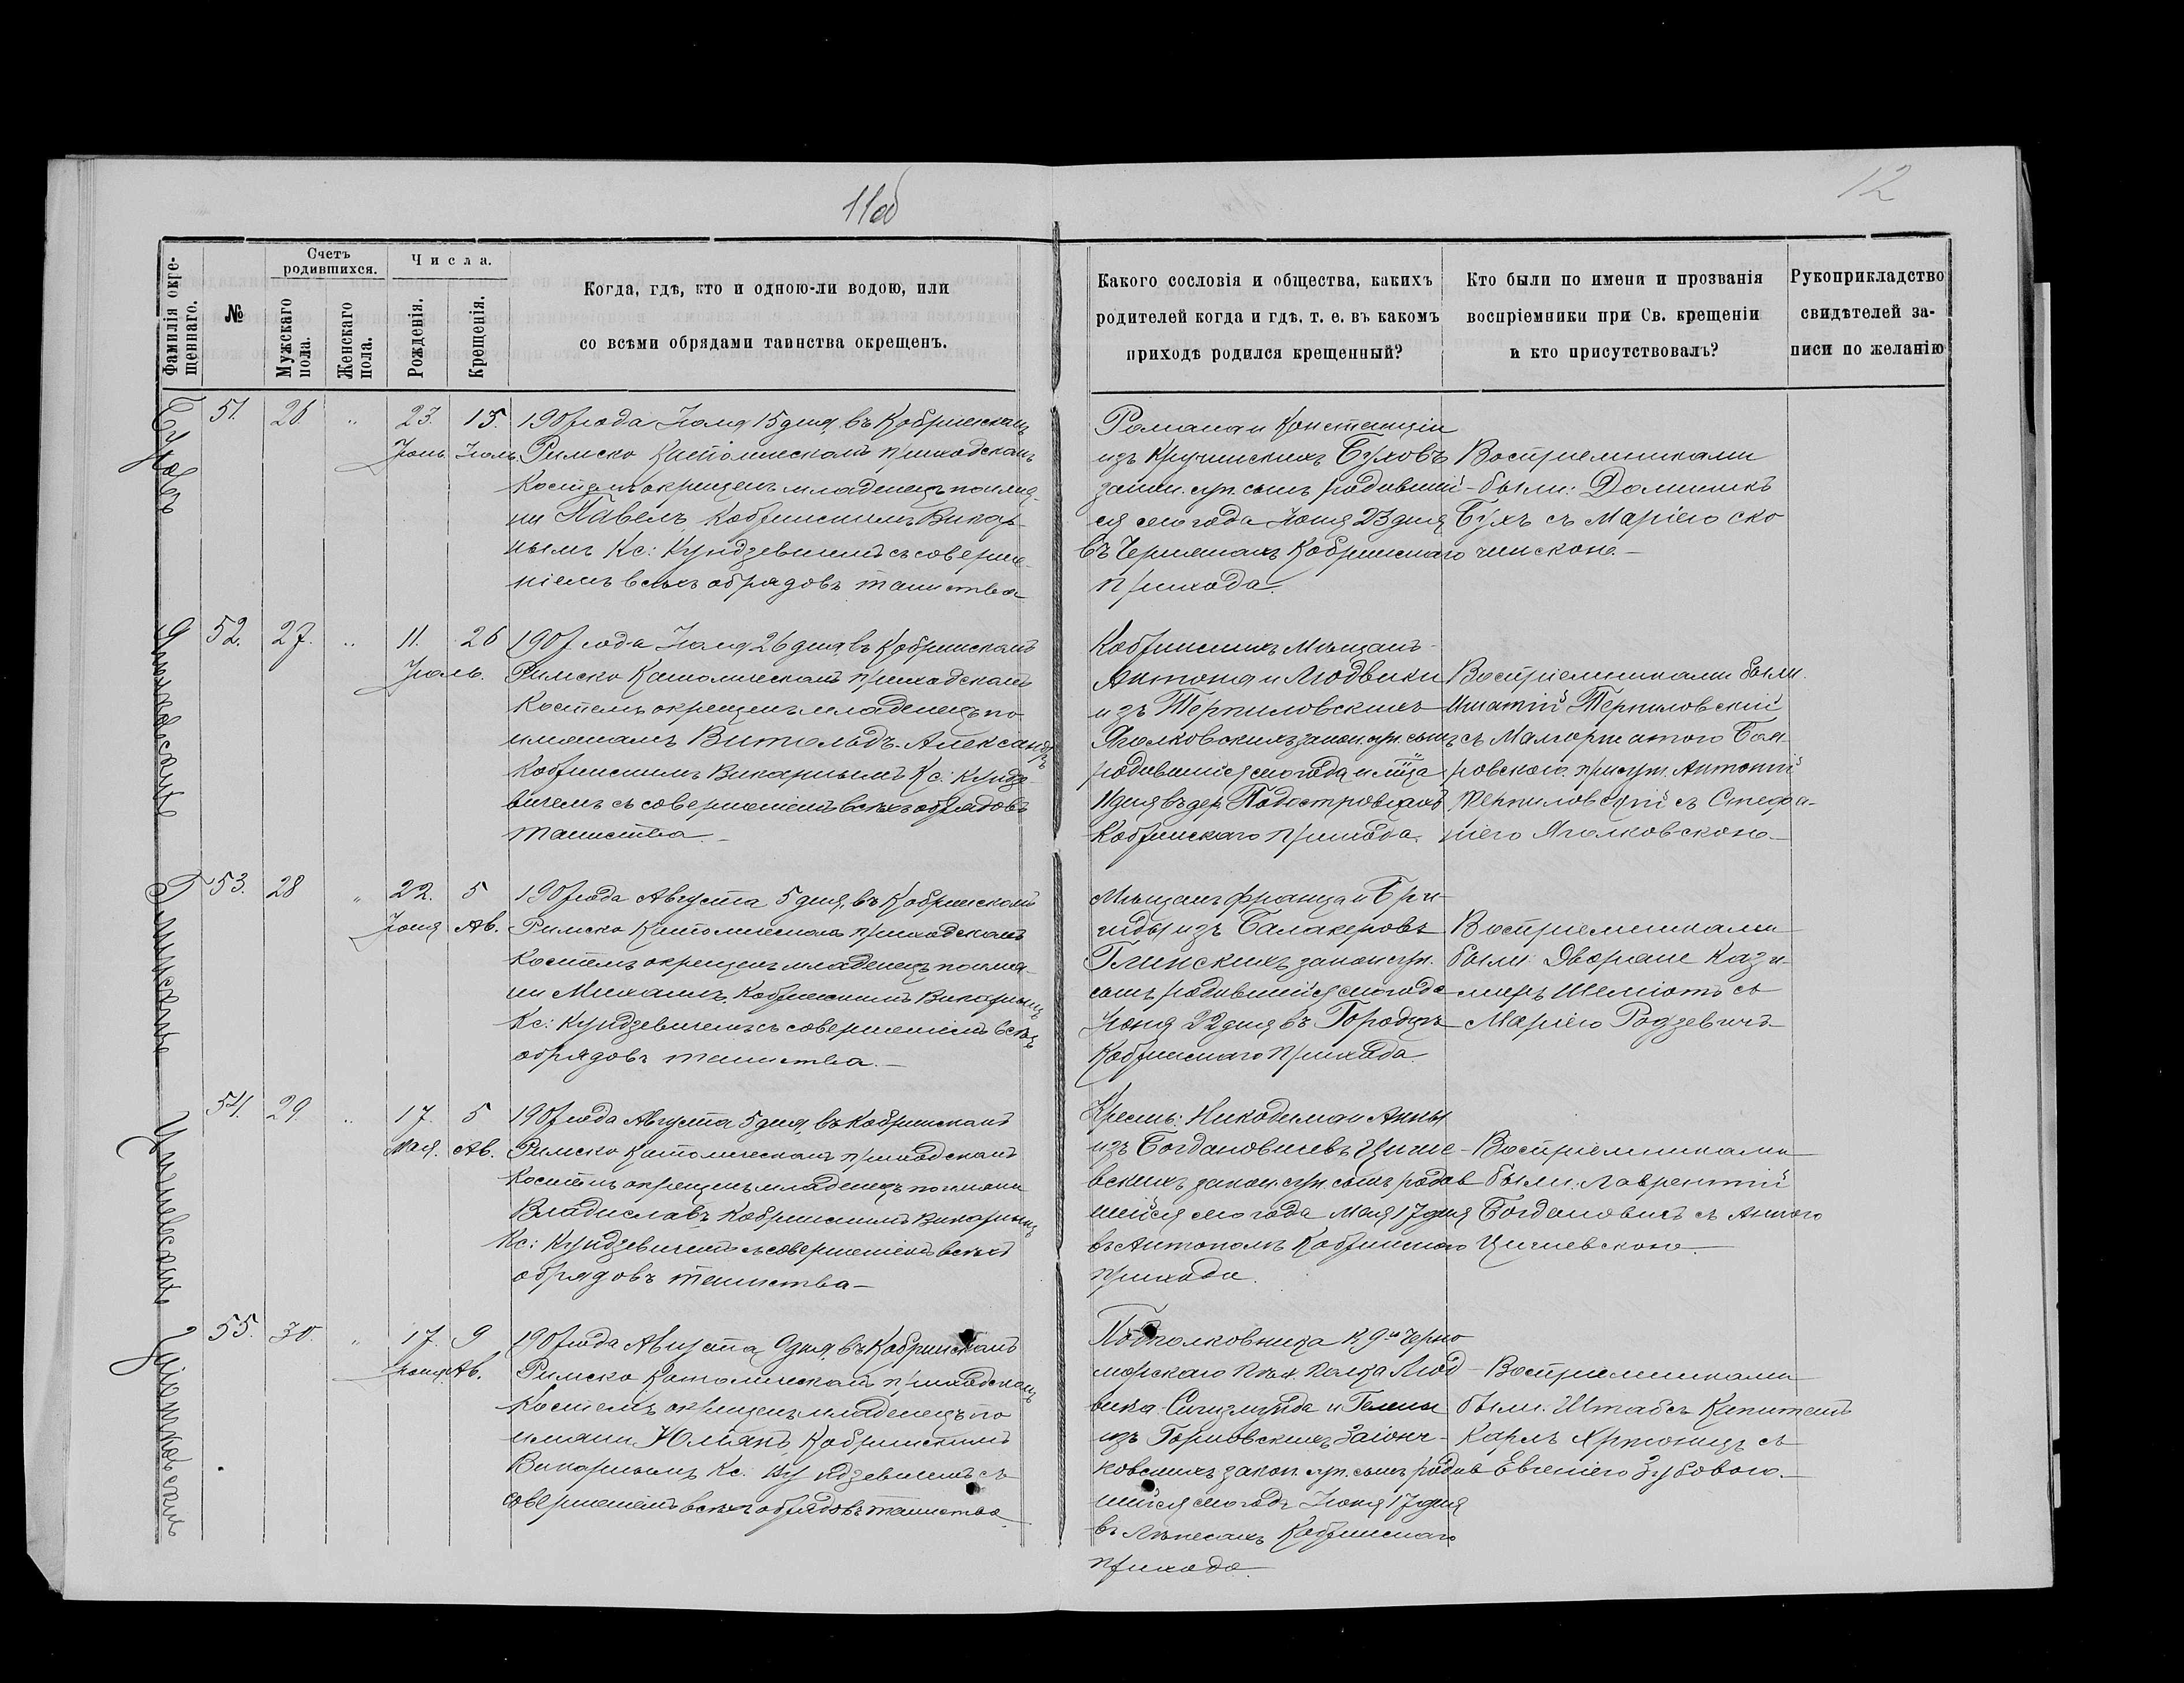 11об
12
Фамилія окре-
щеннаго.
№
Счетъ
родившихся.
Мужскаго
пола.
Женскаго
пола.
Числа.
Рожденія.
Крещенія.
Когда, гдѣ, кто и одною-ли водою, или
со всѣми обрядами таинства окрещенъ.
Какого сословія и общества, какихъ
родителей когда и гдѣ, т. е. въ какомъ
приходѣ родился крещенный?
Кто были по имени и прозванія
воспріемники при Св. крещеніи
и кто присутствовалъ?
Рукоприкладство
свидѣтелей за-
писи по желанію
Бухъ
51. 26 " 23. 15.
Іюнь Іюль
1907 года Іюля 15 дня, въ Кобринскомъ
Римско Католическомъ приходскомъ
Костелѣ окрещенъ младенецъ по име-
ни Павелъ Кобринскимъ Викар-
нымъ Кс: Кундзевичемъ съ соверше-
ніемъ всѣхъ обрядовъ таинства
Романа и Констанціи
изъ Кручинскихъ Буховъ
закон. суп. сынъ родившій-
ся сего года Іюня 23 дня
въ Кобринскаго
прихода.
Воспріемниками
были: Доминикъ
Бухъ съ Маріею Ско
чинскою.—
Яголковскій
52. 27. " 11. 26
Іюль.
1907 года Іюля 26 дня въ Кобринскомъ
Римско Католическомъ приходскомъ
Костелѣ окрещенъ младенецъ по
именамъ Витольдъ-Александръ
Кобринскимъ Викарнымъ Кс: Кундзе
вичемъ съ совершеніемъ всѣхъ обрядовъ
таинства.—
Кобринскихъ Мѣщанъ
Антона и Людвики
изъ Терпиловскихъ
Яголковскихъ закон. суп. сынъ
родившійся сего года и мѣсяца
11 дня въ дер.
Кобринскаго прихода.
Воспріемниками были
Игнатій Терпиловскій
съ Малгоржатою Бон
ровскою. присут. Антоній
Терпиловскій съ Стефа-
ніею Яголковскою.—
Глинскій
53. 28 " 22. 5
Іюня Ав.
1907 года Августа 5 дня, въ Кобринскомъ
Римско Католическомъ приходскомъ
Костелѣ окрещенъ младенецъ по име-
ни Михаилъ, Кобринскимъ Викарнымъ
Кс: Кундзевичемъ съ совершеніемъ всѣхъ
обрядовъ таинства.—
Мѣщанъ Франца и Бри-
гиды изъ Балакеровъ
Глинскихъ закон. суп.
сынъ родившійся сего года
Іюня 22 дня въ Городцѣ
Кобринскаго прихода.
Воспріемниками
были Дворяне Кази-
миръ Шеміотъ съ
Маріею Родзевичъ
Цичевскій
54. 29. " 17. 5
Мая. Ав.
1907 года Августа 5 дня, въ Кобринскомъ
Римско Католическомъ приходскомъ
Костелѣ окрещенъ младенецъ по имени
Владиславъ Кобринскимъ Викарнымъ
Кс: Кундзевичемъ съ совершеніемъ всѣхъ
обрядовъ таинства—
Крест: Никодима и Анны
изъ Богдановичевъ Циче-
вскихъ закон. суп. сынъ родив
шійся сего года Мая 17 дня
въ Антополѣ Кобринскаго
прихода.
Воспріемниками
были: Лаврентій
Богдановичъ съ Анною
Цичевскою—
Заіончковскій
55. 30. " 17. 9
Іюня Ав.
1907 года Августа 9 дня, въ Кобринскомъ
Римско Католическомъ приходскомъ
Костелѣ окрещенъ младенецъ по
имени Юліянъ Кобринскимъ
Викарнымъ Кс. Кундзевичемъ съ
совершеніемъ всѣхъ обрядовъ таинства
Подполковника 149го Черно
морскаго Пѣх. полка Люд-
вика-Сигизмунда и Гелены
изъ Горновскихъ Заіонч-
ковскихъ закон. суп. сынъ родив
шійся сего года Іюня 17 дня
въ Кобринскаго
прихода.
Воспріемниками
были: Штабсъ Капитанъ
Карлъ съ
Евгеніею Зубовою.—